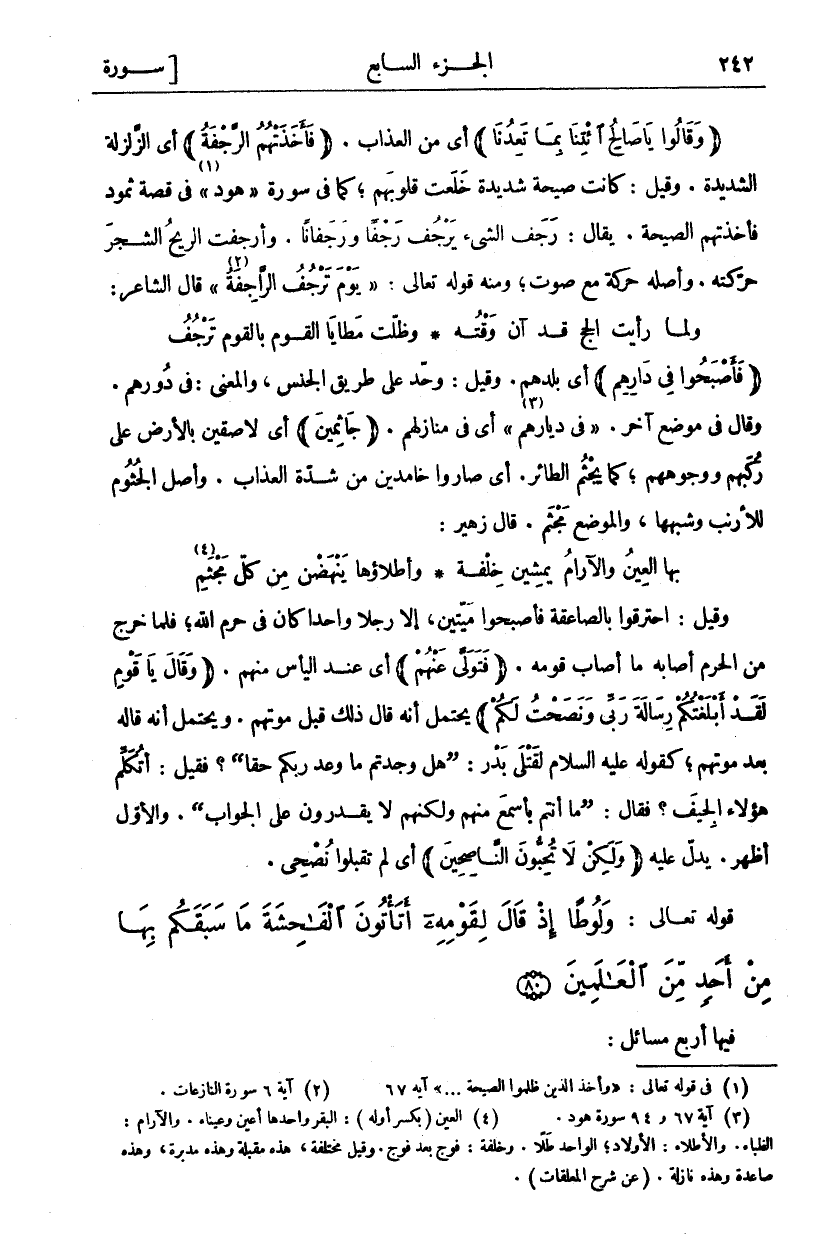 ٢٤٢ الجـزء السابع [ سـورة
﴿ وَقَالُوا يَاصَالِحُ ٱئْتِنَا بِمَا تَعِدُنَا ﴾ أى من العذاب . ﴿ فَأَخَذَتْهُمُ الرَّجْفَةُ ﴾ أى الزَّلزلة
الشديدة . وقيل : كانت صيحة شديدة خَلَعت قلوبَهم ؛ كما فى سورة « هود » فى قصة ثمود (١)
فأخذتهم الصيحة . يقال : رَجَف الشىء يَرْجُف رَجْفًا ورَجَفانًا . وأرجفت الريحُ الشـجرَ
حرّكته . وأصله حركة مع صوت ؛ ومنه قوله تعالى : « يَوْمَ تَرْجُفُ الرَّاجِفَةُ (٢) » قال الشاعر :
ولمـا رأيت الحج قـد آن وَقْتُـه * وظلّت مَطايَا القـوم بالقوم تَرْجُفُ
﴿ فَأَصْبَحُوا فِى دَارِهِم ﴾ أى بلدهم . وقيل : وحّد على طريق الجنس ، والمعنى : فى دُورهم .
وقال فى موضع آخر . « فى ديارهم (٣) » أى فى منازلهم . ﴿ جَاثِمِينَ ﴾ أى لاصقين بالأرض على
رُكَبهم ووجوههم ؛ كما يَجْثُم الطائر . أى صاروا خامدين من شـدّة العذاب . وأصل الجُثوم
للأرنب وشبهها ، والموضع مَجْثَم . قال زهير :
بها العِينُ والآرامُ يمشِين خِلْفـة * وأطلاؤها يَنْهَضْن مِن كلّ مَجْثَمِ (٤)
وقيل : احترقوا بالصاعقة فأصبحوا مَيّتين ، إلا رجلا واحدا كان فى حرم الله ؛ فلما خرج
من الحرم أصابه ما أصاب قومه . ﴿ فَتَوَلَّى عَنْهُمْ ﴾ أى عنـد اليأس منهم . ﴿ وَقَالَ يَا قَوْمِ
لَقَـدْ أَبْلَغْتُكُمْ رِسَالَةَ رَبِّى وَنَصَحْتُ لَكُمْ ﴾ يحتمل أنه قال ذلك قبل موتهم . ويحتمل أنه قاله
بعد موتهم ؛ كقوله عليه السلام لقَتْلَى بَدْر : ”هل وجدتم ما وعد ربكم حقا“ ؟ فقيل : أتُكَلِّم
هؤلاء الجِيَف ؟ فقال : ”ما أنتم بأسمعَ منهم ولكنهم لا يقـدرون على الجواب“ . والأوّل
أظهر . يدلّ عليه ﴿ وَلَكِنْ لَا تُحِبُّونَ النَّـاصِحِينَ ﴾ أى لم تقبلوا نُصْحِى .
قوله تعـالى : وَلُوطًا إِذْ قَالَ لِقَوْمِهِۦٓ أَتَأْتُونَ ٱلْفَـٰحِشَةَ مَا سَبَقَكُم بِهَا
مِنْ أَحَدٍ مِّنَ ٱلْعَـٰلَمِينَ ﴿٨٠﴾
فيها أربع مسائل :
(١) فى قوله تعالى : «وأخذ الذين ظلموا الصيحة ...» آية ٦٧ (٢) آية ٦ سورة النازعات .
(٣) آية ٦٧ و ٩٤ سورة هود . (٤) العين (بكسر أوله) : البقر واحدها أعين وعيناء . والآرام :
الظباء . والأطلاء : الأولاد ؛ الواحد طَلًا . وخلفة : فوج بعد فوج . وقيل مختلفة ، هذه مقبلة وهذه مدبرة ، وهذه
صاعدة وهذه نازلة . ( عن شرح المعلقات ) .